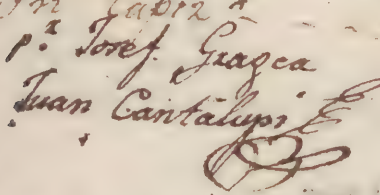 p.r Josef. Gragea
Juan Cantalupi